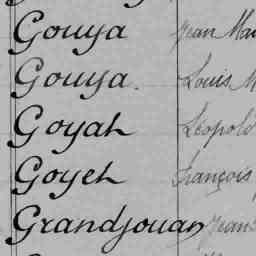 Gouya Jean
Gouya. Louis
Goyah Léopold
Goyeh François
Grandjouan Jean